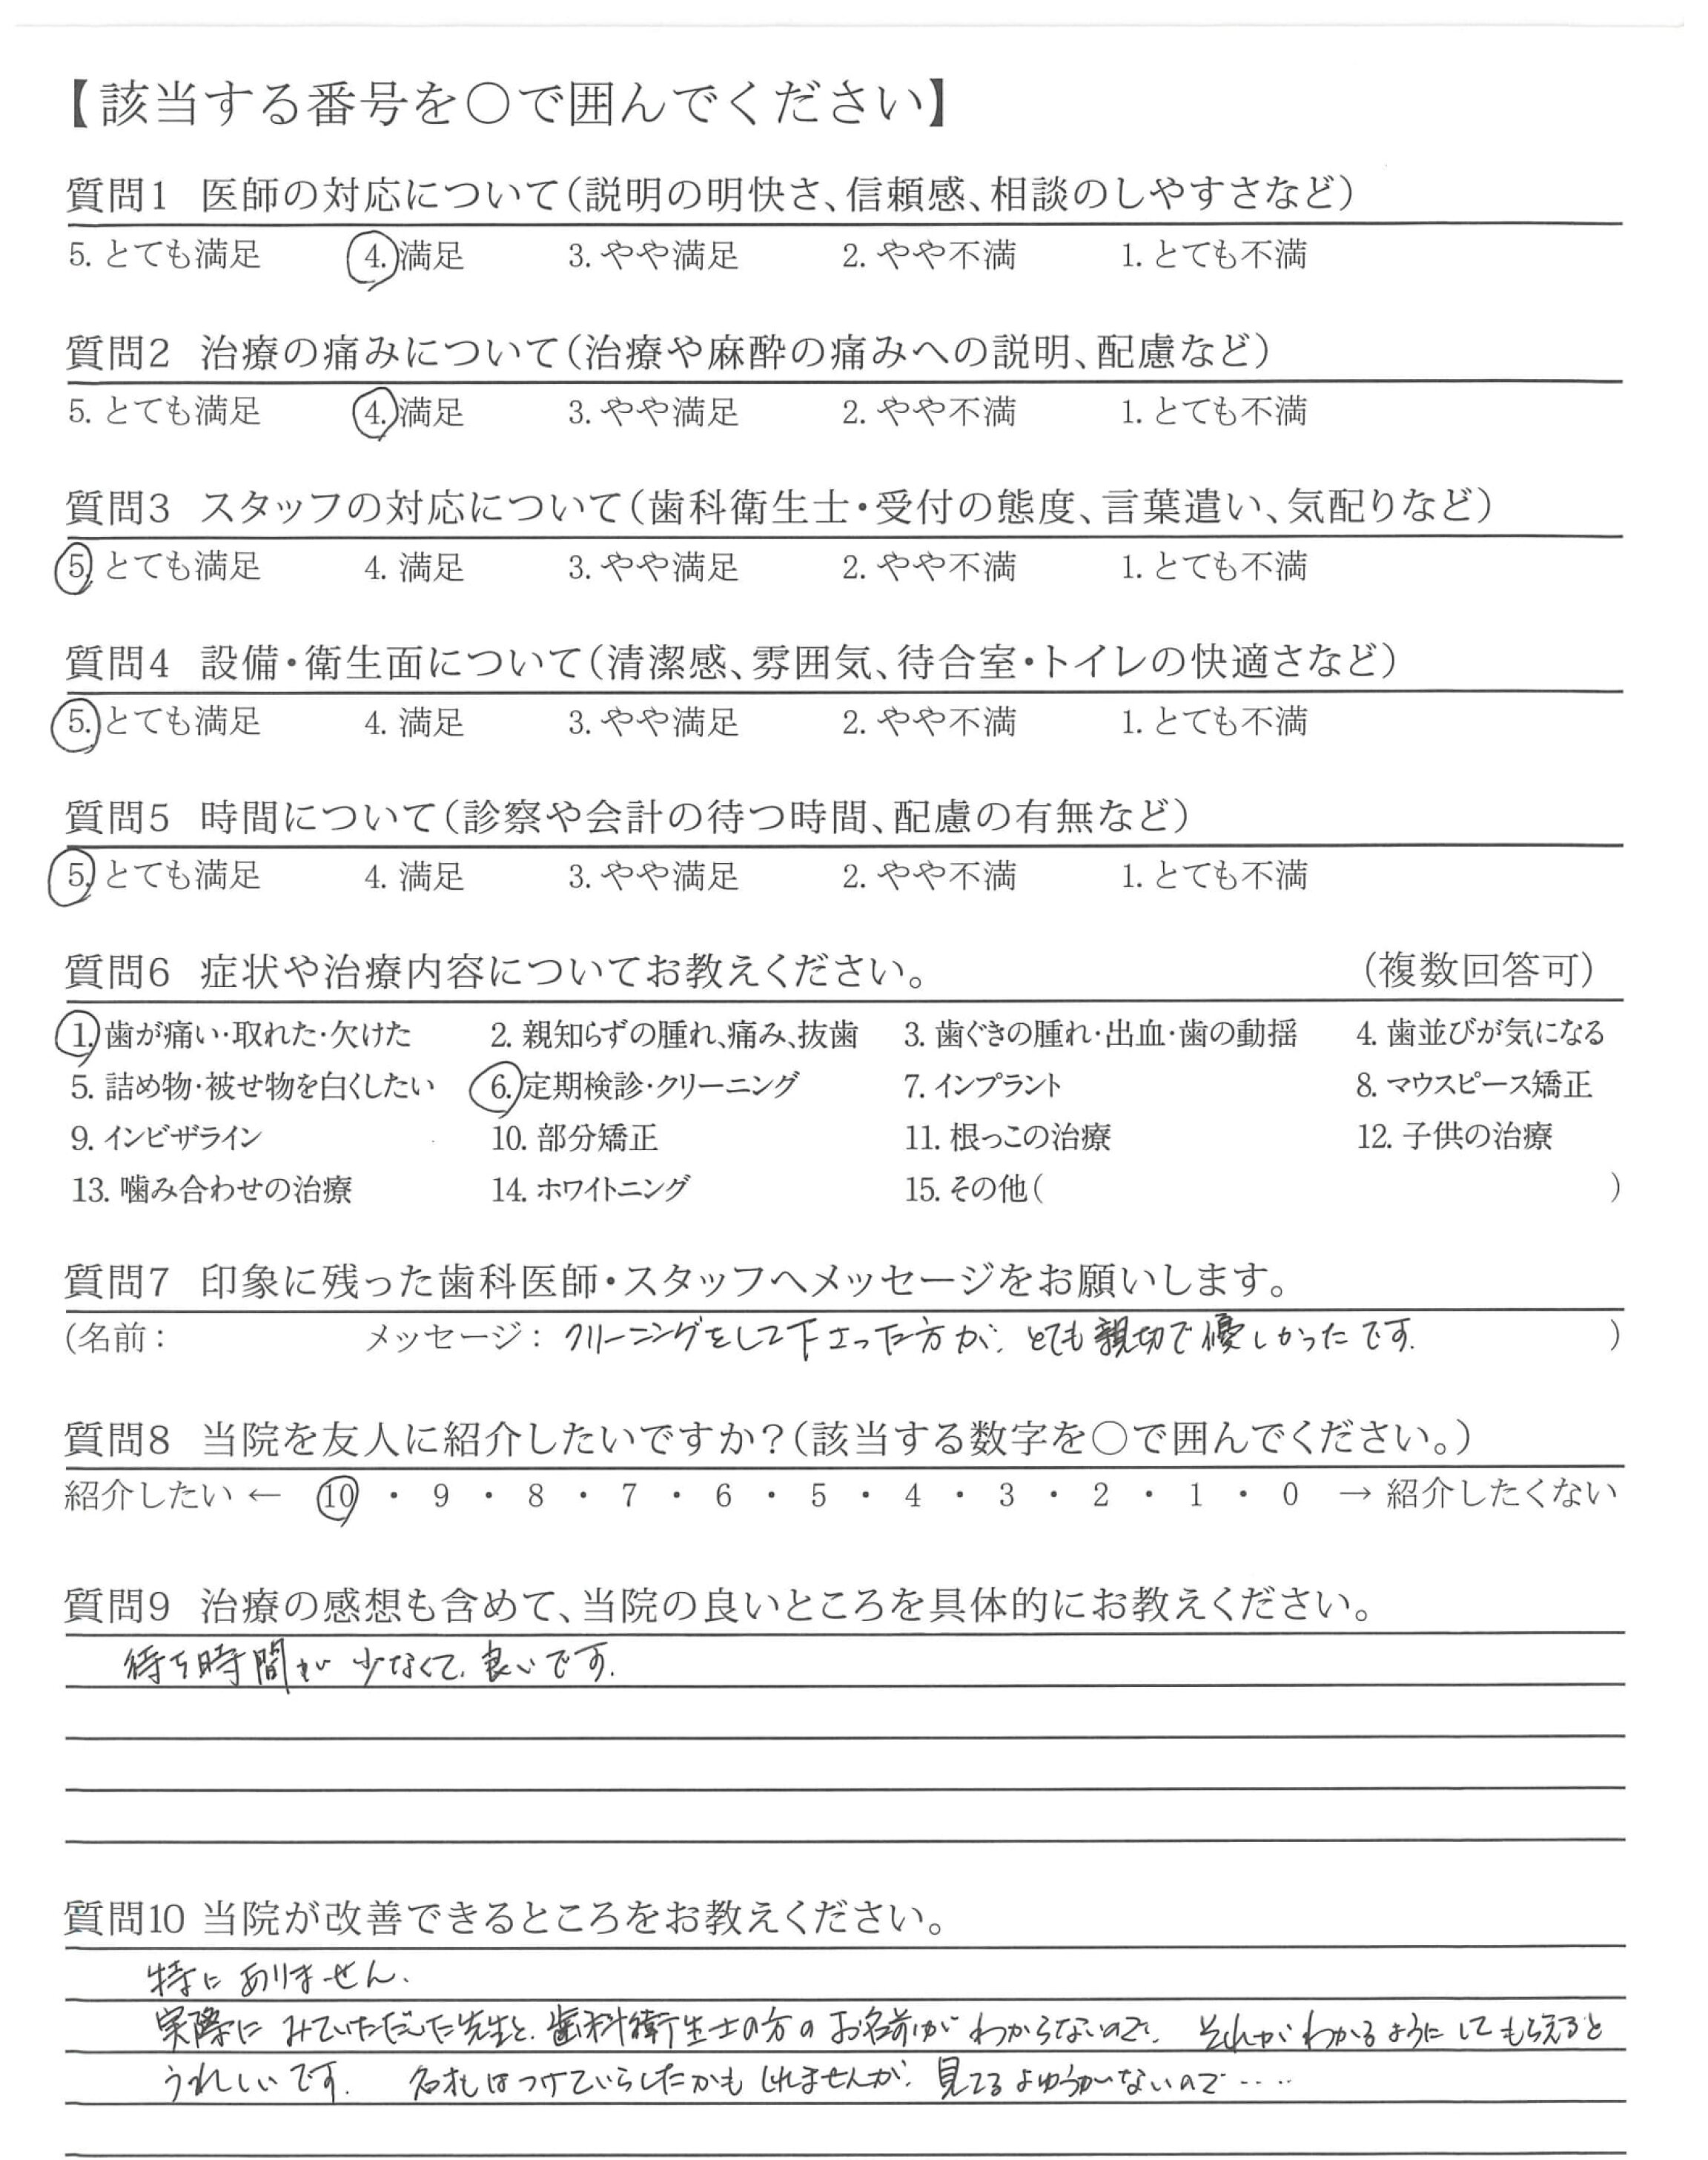 【該当する番号を○で囲んでください】
質問1 医師の対応について(説明の明快さ、信頼感、相談のしやすさなど)
5. とても満足 4. 満足 3. やや満足 2. やや不満 1. とても不満
質問2 治療の痛みについて(治療や麻酔の痛みへの説明、配慮など)
5. とても満足 4. 満足 3. やや満足 2. やや不満 1. とても不満
質問3 スタッフの対応について(歯科衛生士・受付の態度、言葉遣い、気配りなど)
5. とても満足 4. 満足 3. やや満足 2. やや不満 1. とても不満
質問4 設備・衛生面について(清潔感、雰囲気、待合室・トイレの快適さなど)
5. とても満足 4. 満足 3. やや満足 2. やや不満 1. とても不満
質問5 時間について(診察や会計の待つ時間、配慮の有無など)
5. とても満足 4. 満足 3. やや満足 2. やや不満 1. とても不満
質問6 症状や治療内容についてお教えください。 (複数回答可)
1. 歯が痛い・取れた・欠けた 2. 親知らずの腫れ、痛み、抜歯 3. 歯ぐきの腫れ・出血・歯の動揺 4. 歯並びが気になる
5. 詰め物・被せ物を白くしたい 6. 定期検診・クリーニング 7. インプラント 8. マウスピース矯正
9. インビザライン 10. 部分矯正 11. 根っこの治療 12. 子供の治療
13. 噛み合わせの治療 14. ホワイトニング 15. その他( )
質問7 印象に残った歯科医師・スタッフへメッセージをお願いします。
(名前: メッセージ: クリーニングをして下さった方が、とても親切で優しかったです. )
質問8 当院を友人に紹介したいですか?(該当する数字を○で囲んでください。)
紹介したい ← 10 ・ 9 ・ 8 ・ 7 ・ 6 ・ 5 ・ 4 ・ 3 ・ 2 ・ 1 ・ 0 → 紹介したくない
質問9 治療の感想も含めて、当院の良いところを具体的にお教えください。
待ち時間が少なくて、良いです.
質問10 当院が改善できるところをお教えください。
特にありません.
実際にみていただいた先生と、歯科衛生士の方のお名前がわからないので、それがわかるようにしてもらえると
うれしいです. 名札はつけていらしたかもしれませんが、見てるよゆうがないので‥‥